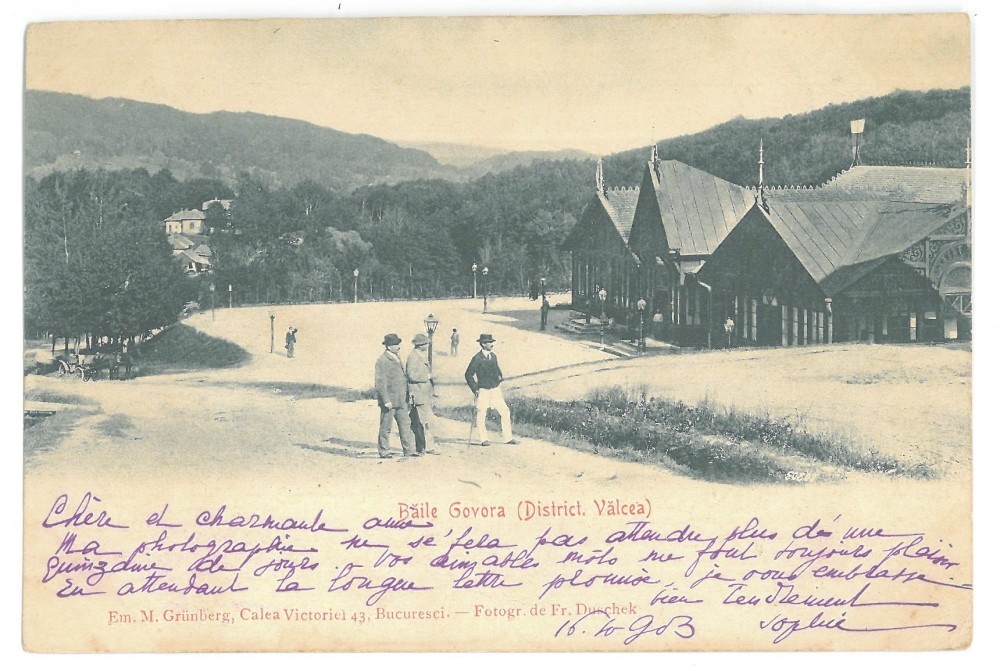 Băile Govora (District. Vălcea)
Chère et charmante amie
Ma photographie ne se fera pas attendre plus dé une
quinzaine de jours. Vos aimables mots me font toujours plaisir
En attendant la longue lettre promise, je vous embrasse
bien tendrement
Em. M. Grünberg, Calea Victoriei 43, Bucuresci. — Fotogr. de Fr. Duschek
903
Sophie